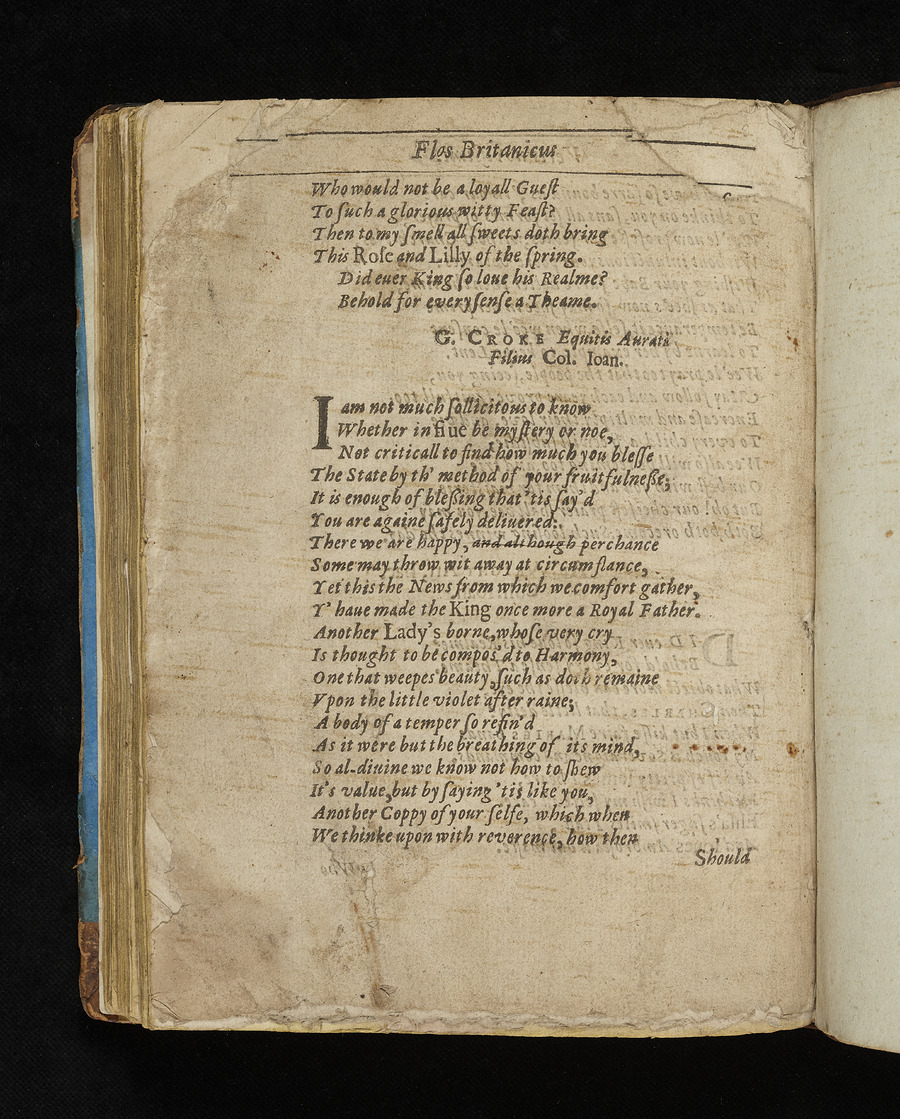 Flos Britanicus
Who would not be a loyall Gueſt
To ſuch a glorious witty Feaſt?
Then to my ſmell all ſweets doth bring
This Roſe and Lilly of the ſpring.
Did euer King ſo loue his Realme?
Behold for every ſenſe a Theame.
G. CROKE Equitis Aurati
Filius Col. Ioan.
I am not much ſollicitous to know
Whether in fiue be myſtery or noe,
Not criticall to find how much you bleſſe
The State by th' method of your fruitfulneſſe;
It is enough of bleſſing that 'tis ſay'd
You are againe ſafely deliuered:
There we are happy, and although perchance
Some may throw wit away at circumſtance,
Yet this the News from which we comfort gather,
Y' haue made the King once more a Royal Father.
Another Lady's borne, whoſe very cry
Is thought to be compos'd to Harmony,
One that weepes beauty, ſuch as doth remaine
Vpon the little violet after raine;
A body of a temper ſo refin'd
As it were but the breathing of its mind,
So al-diuine we know not how to ſhew
It's value, but by ſaying 'tis like you,
Another Coppy of your ſelfe, which when
We thinke upon with reverence, how then
Should